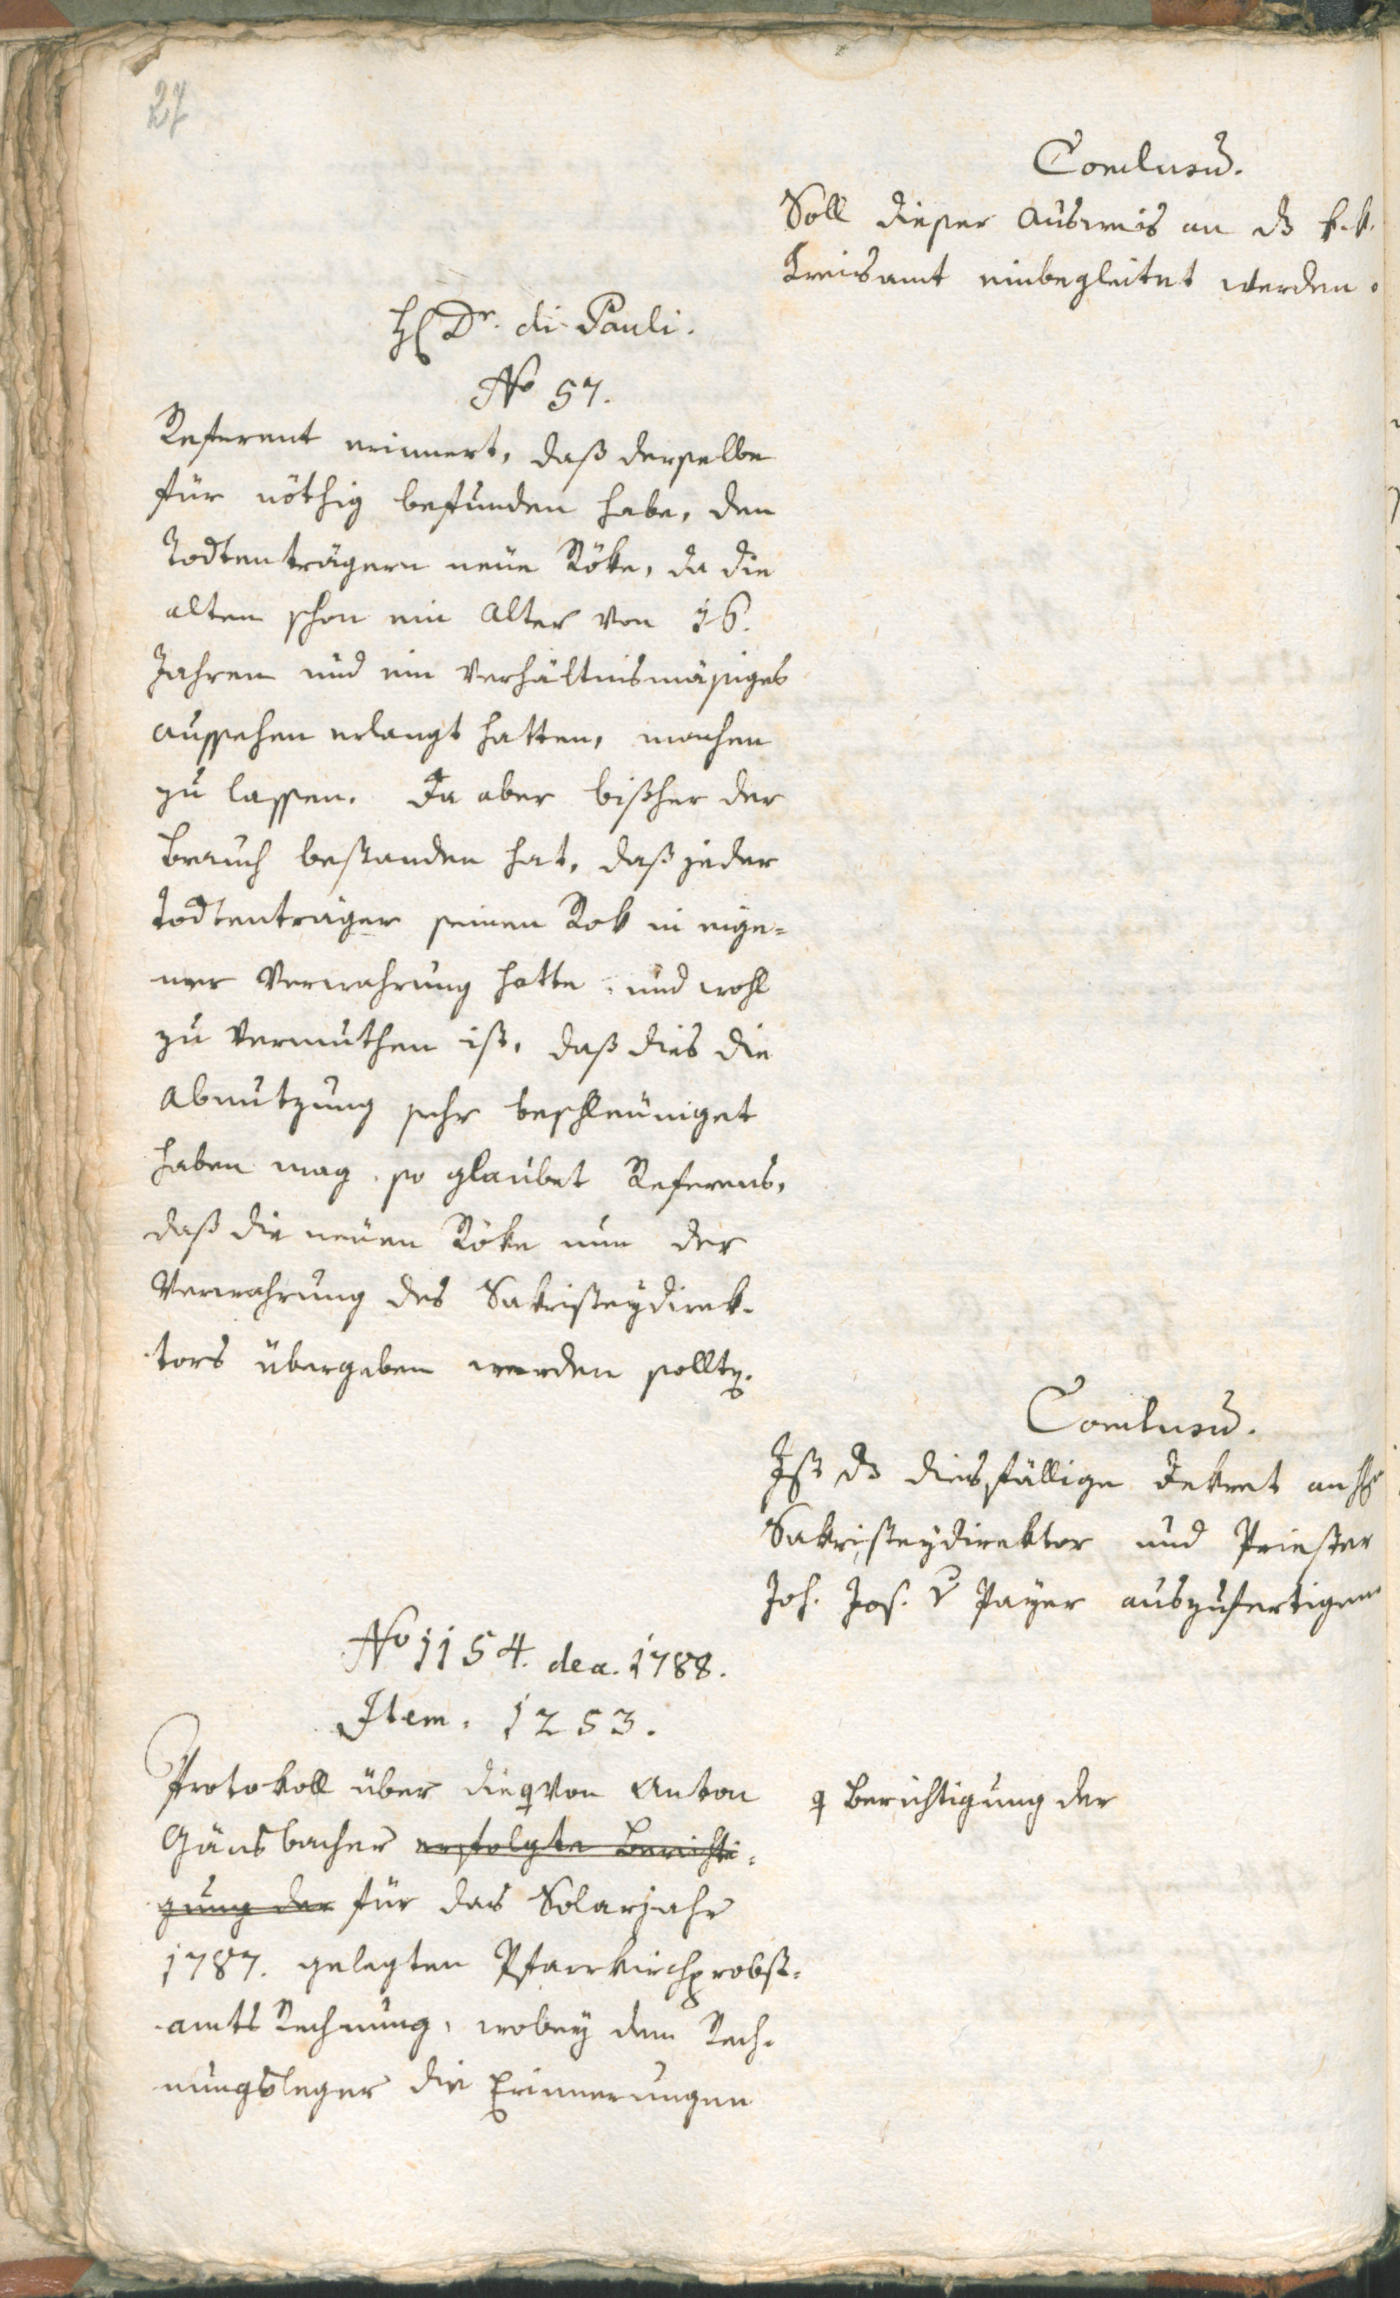 27
Conclusũ.
Soll dieser Ausweis an dz k. k.
Kreisamt einbegleitet werden.
H Dr. di Pauli.
No 57.
Referent erinnert, daß derselbe
für nöthig befunden habe, den
Todtenträgern neüe Röke, da die
alten schon ein Alter von 16.
Jahren und ein verhältnismäsiges
Aussehen erlangt hatten, machen
zu lassen. Da aber bißher der
Brauch bestanden hat, daß jeder
Todtenträger seinen Rok in eige-
ner Verwahrung hatte, und wohl
zu vermuthen ist, daß dies die
Abnutzung sehr beschleüniget
haben mag, so glaubet Referens,
daß die neüen Röke nun der
Verwahrung des Sakristeydirek-
tors übergeben werden sollten.
Conclusũ.
Ist dz diesfällige Dekret an H
Sakristeydirektor und Priester
Joh. Jos. v Payer auszufertigen
No 1154. de a. 1788.
Item. 1253.
Protokoll über die von Anton
Berichtigung der
Gänsbacher erfolgte Berichti-
gung der für das Solarjahr
1787. gelegten Pfarrkirchprobst-
amts Rechnung, wobey dem Rech-
nungsleger die Erinnerungen